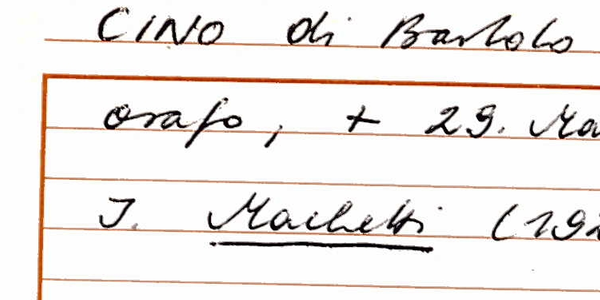 CINO di Bartolo
orafo, + 29. Ma
I. Machetti (192